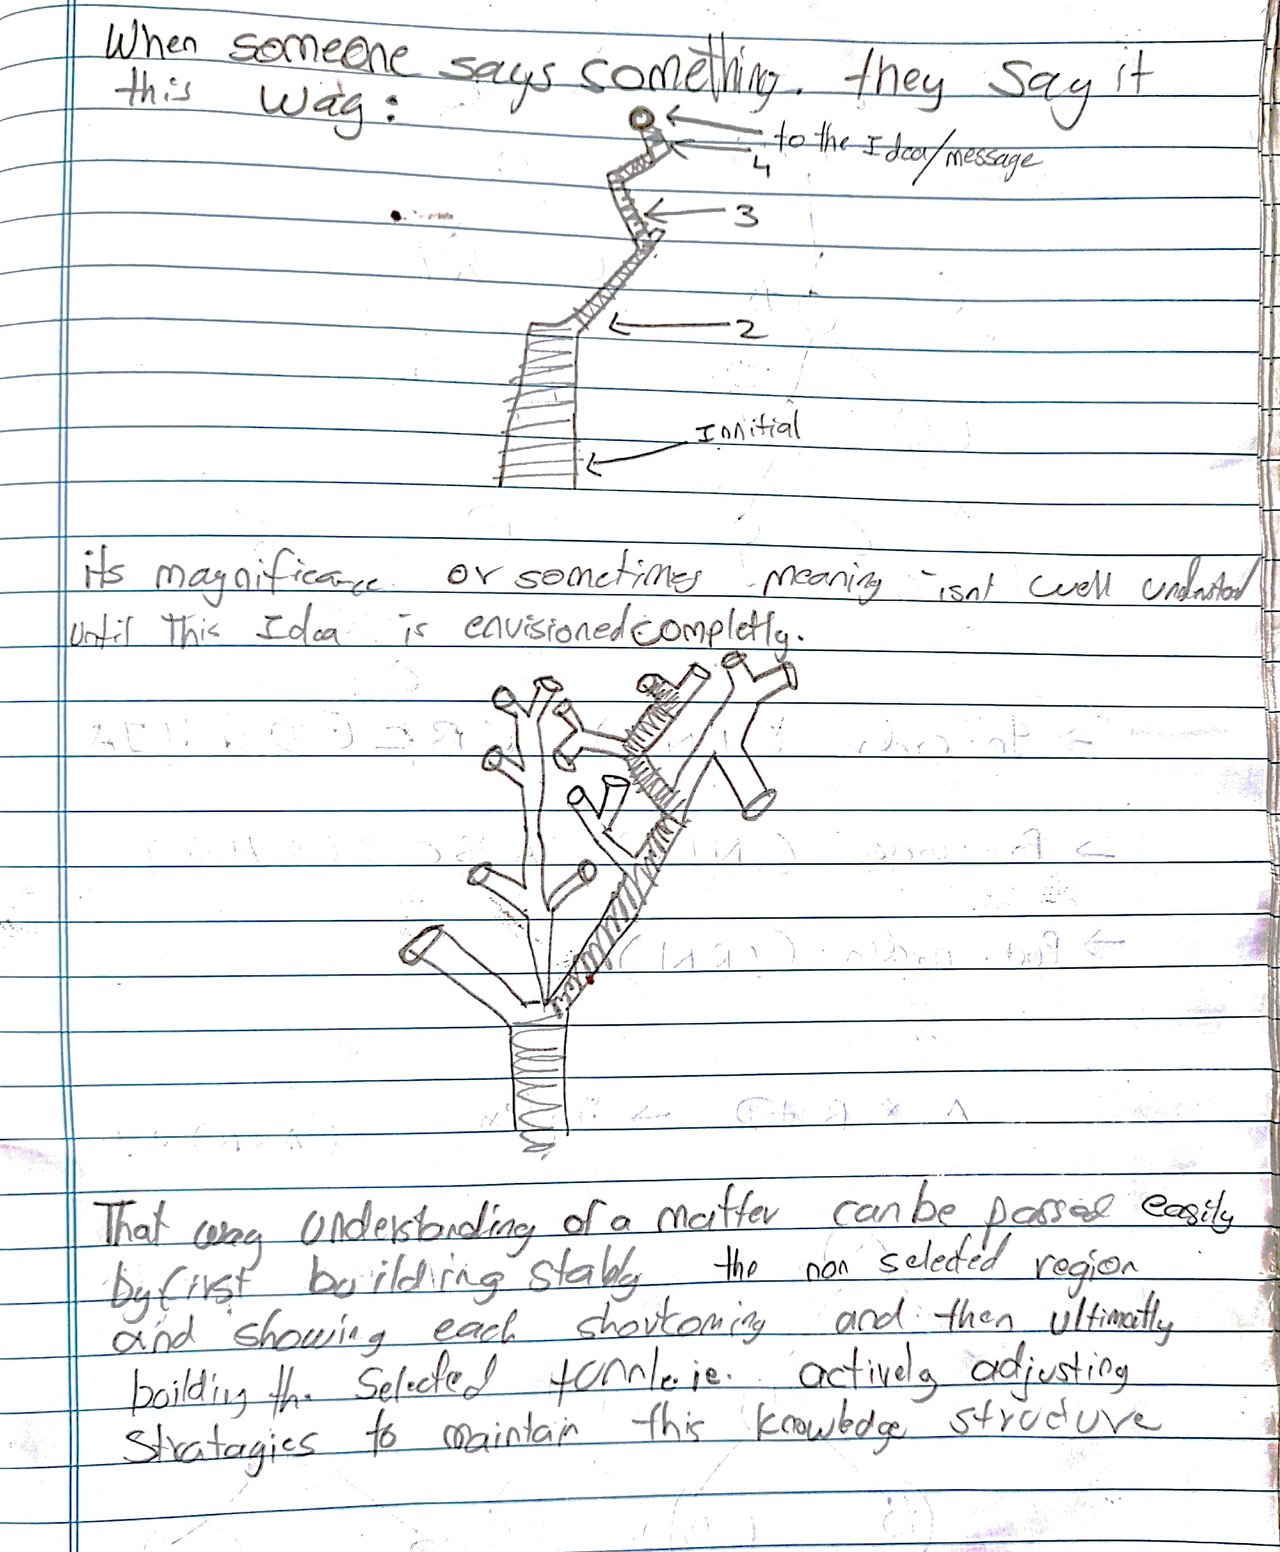 When someone says something. they say it
this way:
to the Idea/message
4
3
2
Innitial
its magnificance or sometimes meaning isnt well undrstod
until this Idea is envisioned completly.
That way understanding of a matter can be passed easily
by first building stably the non selected region
and showing each shortcoming and then ultimatly
building the selected i.e. actively adjusting
stratagies to maintain this knowledge structure